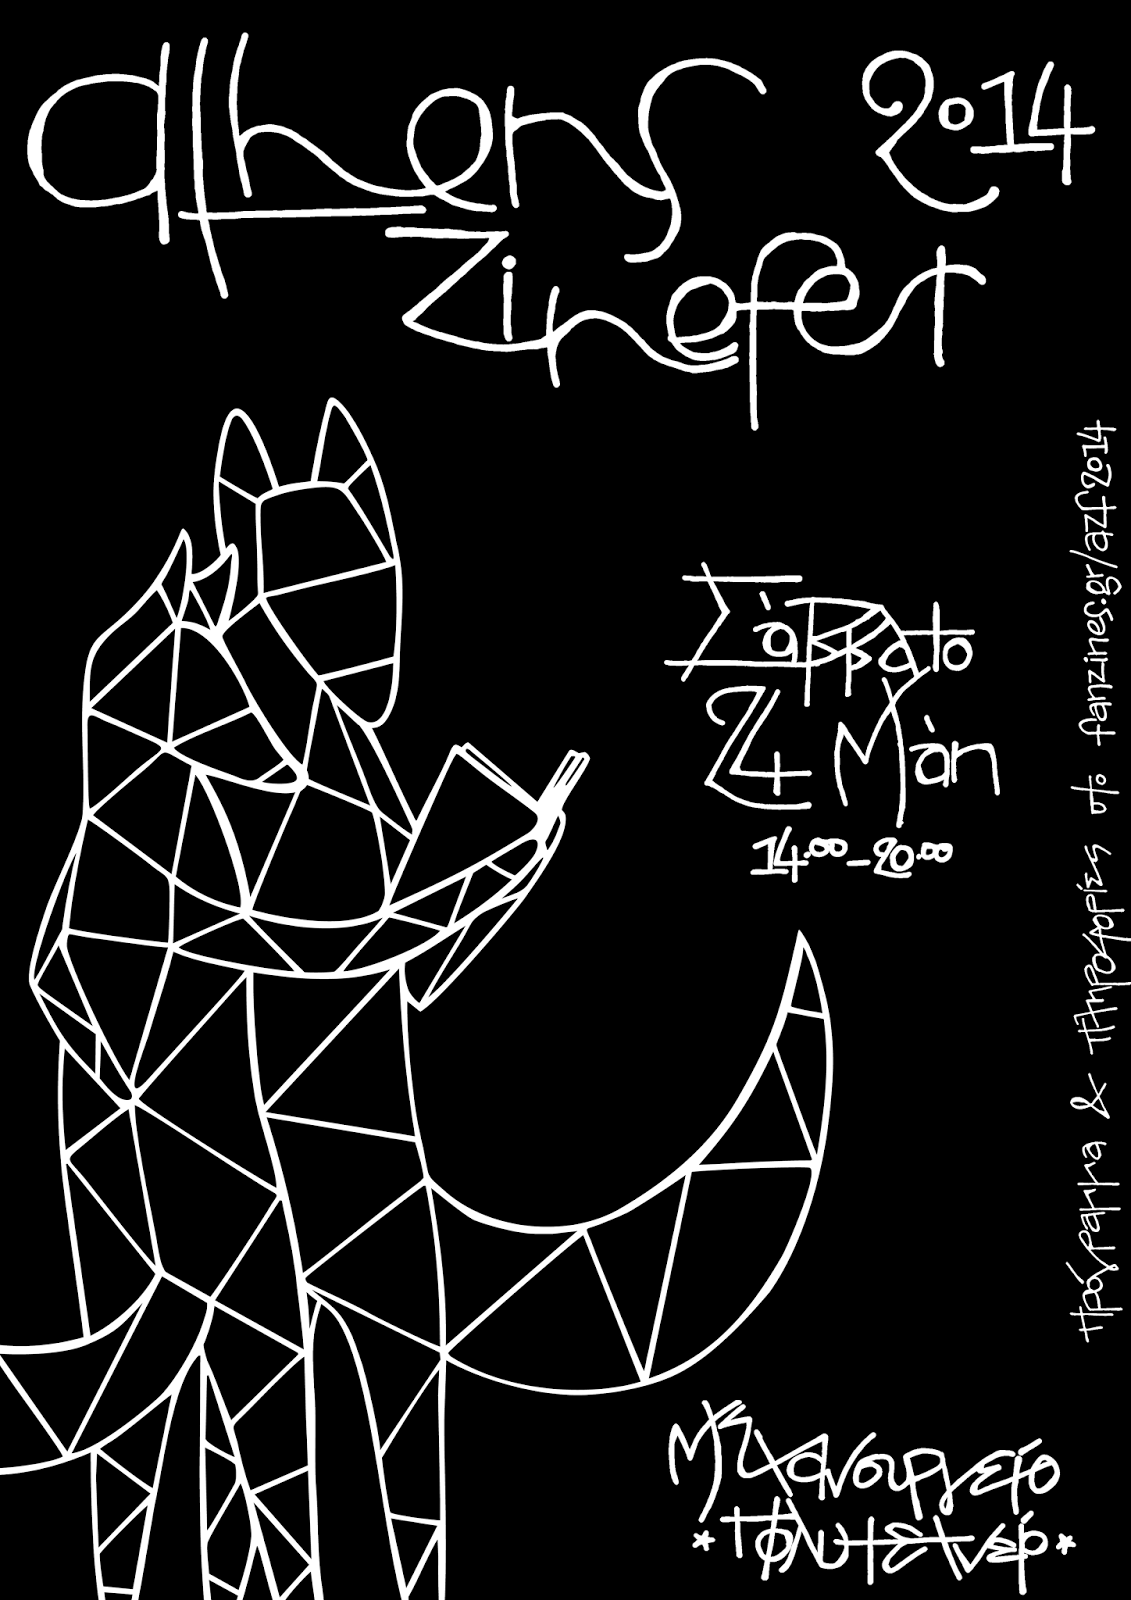 athens 2014
zinefest
Σάββατο
24 Μάη
14.00-20.00
πρόγραμμα & πληροφορίες στο fanzines.gr/azf2014
Μηχανουργείο
*πολυτεχνείο*